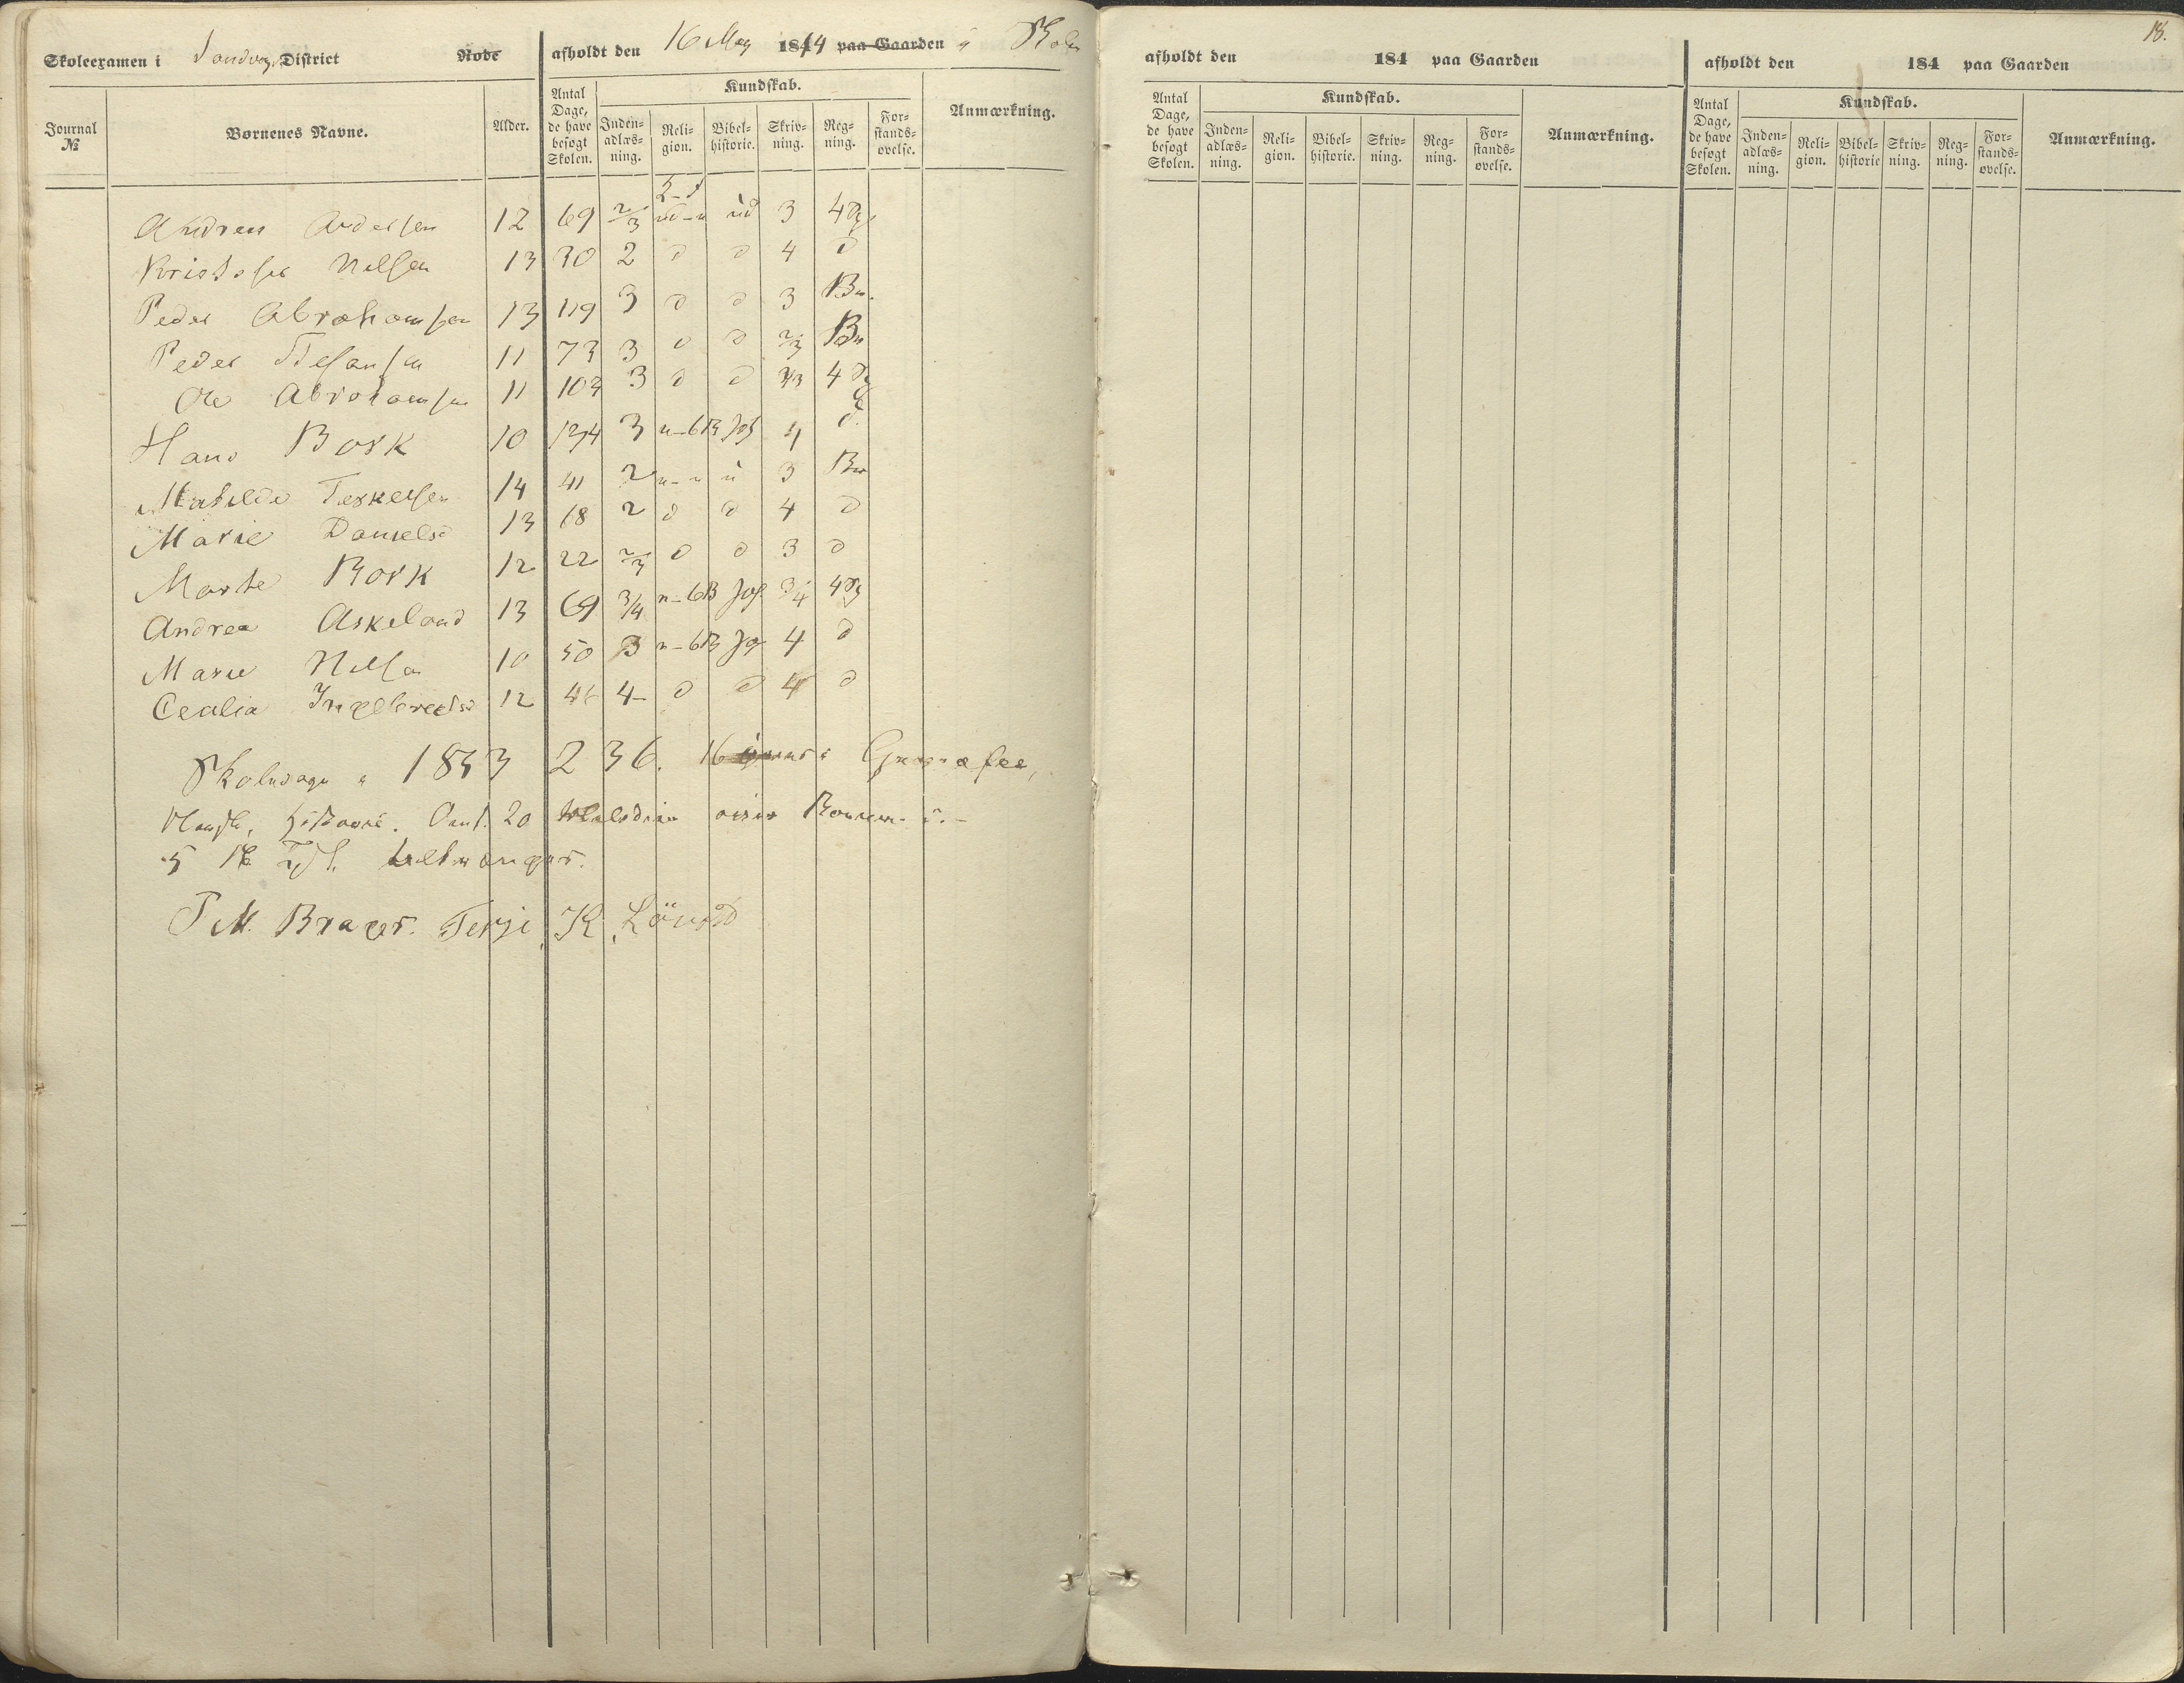 Skoleexamen i Sandvig District Rode afholdt den 16 May 1844 paa Gaarden i Skolen
Journal № Børnenes Navne. Alder. Antal Dage, de have besøgt Skolen. Kundskab. Inden-adlæs-ning. Reli-gion. Bibel-historie. Skriv-ning. Reg-ning. For-stands-øvelse. Anmærkning.
Andreas Andersen 12 69 2/3 ud-u ud 3 4
Kristofer Nilsen 13 30 2 d d 4 d
Peder Abrahamsen 13 119 3 d d 3 Br.
Peder Stefansen 11 73 3 d d 2/3 Br
Ole Abrahamsen 11 103 3 d d 3 4
Hans Bork 10 134 3 u-6B Jos 4 d.
Mathilde Terkelsen 14 41 2 u-u u 3 Br
Marie Danielsd 13 68 2 d d 4 d
Marte Bork 12 22 2/3 d d 3 d
Andrea Askeland 13 69 3/4 u-6B Jos. 3/4 4
Marie Nilsen 10 50 3 u-6B Jos 4 d
Cecilia Ingelbretsd 12 46 4- d d 4 d
Skoledage i 1853 236. 16
Historie. 20
5
T M. Brager. Terje K. Løvold
afholdt den 184 paa Gaarden
Antal Dage, de have besøgt Skolen. Kundskab. Inden-adlæs-ning. Reli-gion. Bibel-historie. Skriv-ning. Reg-ning. For-stands-øvelse. Anmærkning.
18.
afholdt den 184 paa Gaarden
Antal Dage, de have besøgt Skolen. Kundskab. Inden-adlæs-ning. Reli-gion. Bibel-historie Skriv-ning. Reg-ning. For-stands-øvelse. Anmærkning.